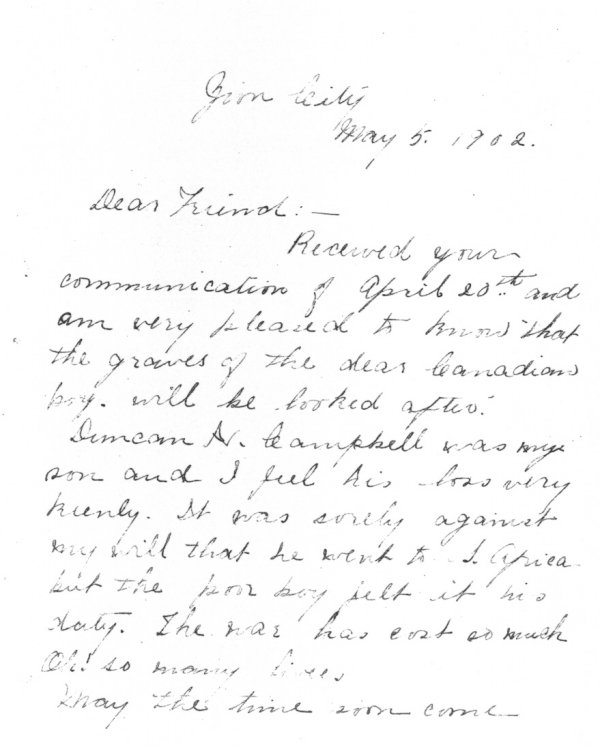 Zion City
May 5. 1902.
Dear Friend:—
Received your
communication of April 20th and
am very pleased to know that
the graves of the dear Canadian
boy. will be looked after.
Duncan N. Campbell was my
son and I feel his loss very
keenly. It was sorely against
my will that he went to S. Africa
but the poor boy felt it his
duty. The war has cost so much
Oh! so many lives
May the time soon come